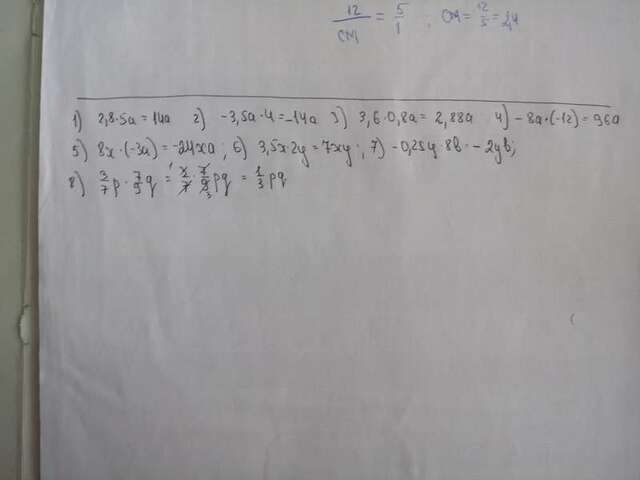 12/СМ = 5/1 ; СМ = 12/5 = 2,4
1) 2,8·5a = 14a 2) -3,5a·4 = -14a 3) 3,6·0,8a = 2,88a 4) -8a·(-12) = 96a
5) 8x·(-3a) = -24xa ; 6) 3,5x·2y = 7xy ; 7) -0,25y·8b = -2yb;
8) 3/7 p · 7/9 q = 3/7 · 7/9 pq = 1/3 pq